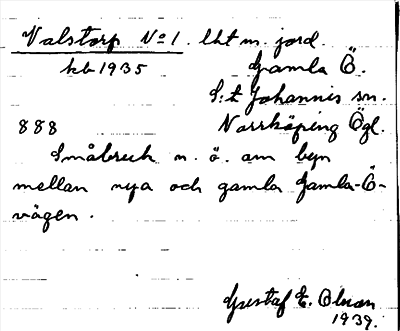 Valstorp No 1. lht m. jord.
kb 1935 Gamla Ö.
S:t Johannis sn.
888 Norrköping Ögl.
Småbruk n. ö. om byn
mellan nya och gamla Gamla-Ö-
vägen.
Gustaf E. Olsson
1939.